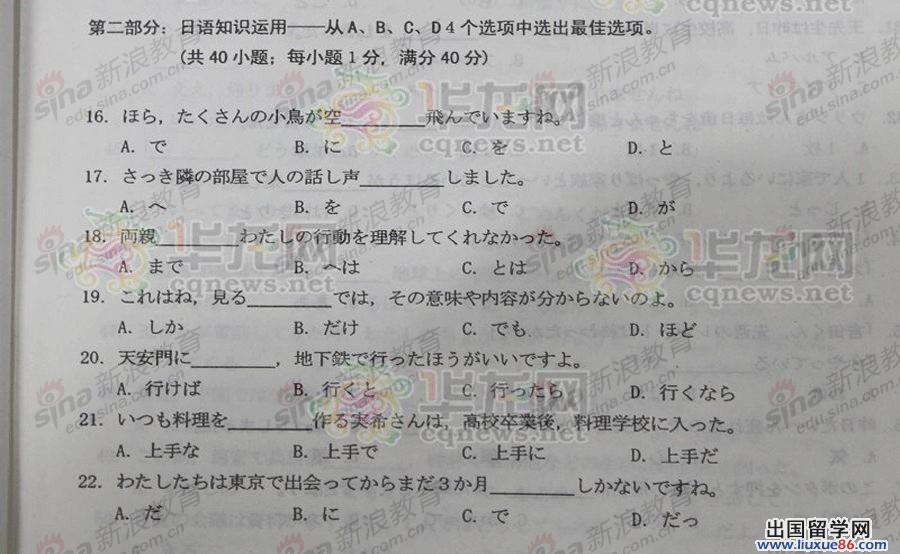 第二部分：日语知识运用——从A、B、C、D 4个选项中选出最佳选项。
(共40小题；每小题1分，满分40分)
16. ほら，たくさんの小鳥が空________飛んでいますね。
A. で B. に C. を D. と
17. さっき隣の部屋で人の話し声________しました。
A. へ B. を C. で D. が
18. 両親________わたしの行動を理解してくれなかった。
A. まで B. へは C. とは D. から
19. これはね，見る________では，その意味や内容が分からないのよ。
A. しか B. だけ C. でも D. ほど
20. 天安門に________，地下鉄で行ったほうがいいですよ。
A. 行けば B. 行くと C. 行ったら D. 行くなら
21. いつも料理を________作る実希さんは，高校卒業後，料理学校に入った。
A. 上手な B. 上手で C. 上手に D. 上手だ
22. わたしたちは東京で出会ってからまだ3か月________しかないですね。
A. だ B. に C. で D. だっ
sina 新浪教育
edu.sina.com.cn
华龙网
cqnews.net
出国留学网
www.liuxue86.com